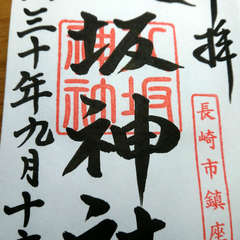 拝
長崎市鎮座
坂神社
三十年九月十